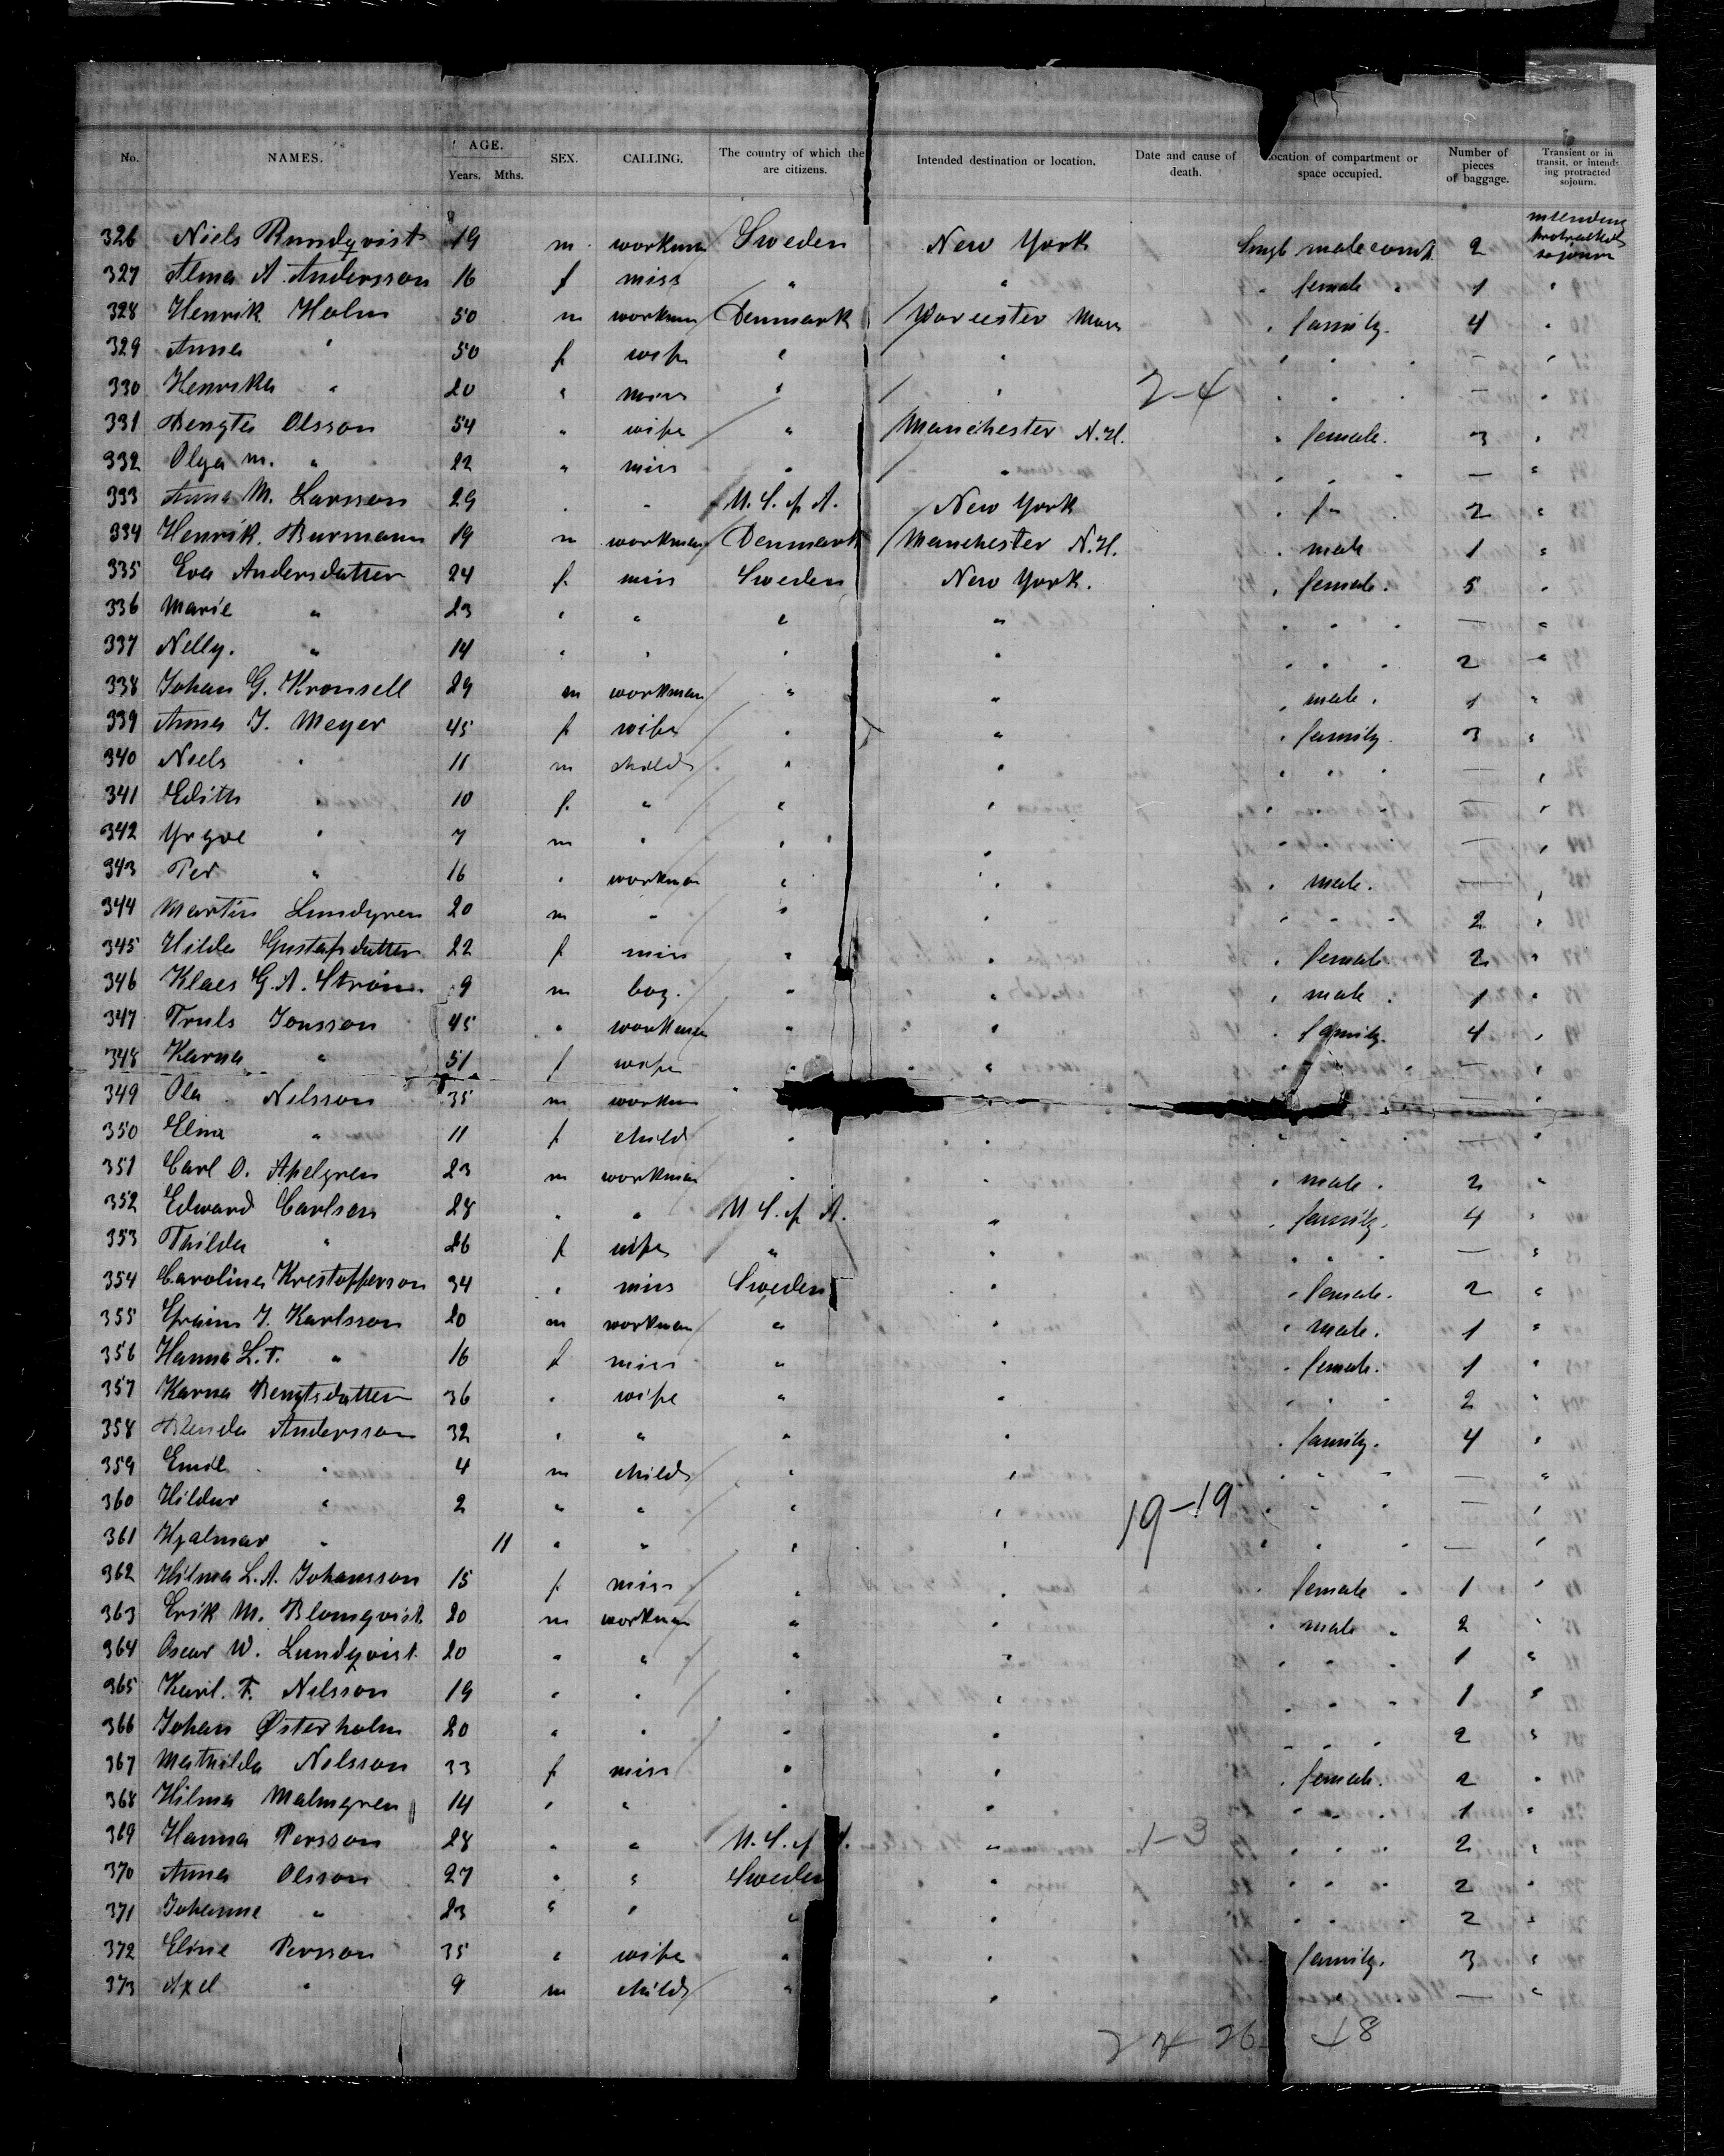 No. NAMES. AGE. Years. Mths. SEX. CALLING. The country of which the are citizens. Intended destination or location. Date and cause of death. Location of compartment or space occupied. Number of pieces of baggage. Transient or in transit, or intending protracted sojourn.
326 Niels Rundqvist 19 m workman Sweden New York Single male compt. 2 intending protracted sojourn
327 Alma A. Andersson 16 f miss " " " female " 1 "
328 Henrik Holm 50 m workman Denmark Worcester Mass " family. 4 "
329 Anna " 50 f wife " " " " " — "
330 Henrika " 20 " miss " " 2-4 " " " — "
331 Bengta Olsson 54 " wife " Manchester N.H. " female. 3 "
332 Olga M. " 22 " miss " " " " " — "
333 Anna M. Larsson 29 " " U.S. of A. New York " f " " 2 "
334 Henrik Burmann 19 m workman Denmark Manchester N.H. " male 1 "
335 Eva Andersdatter 24 f miss Sweden New York. " female. 5 "
336 Marie " 23 " " " " " " " — "
337 Nelly. " 14 " " " " " " " 2 "
338 Johan G. Kronsell 29 m workman " " " male. 1 "
339 Anna J. Meyer 45 f wife " " " family 3 "
340 Niels " 11 m child " " " " " — "
341 Edith " 10 f. " " " " " " — "
342 Yrgve " 7 m " " " " " " — "
343 Per " 16 " workman " " " male. — "
344 Martin Lundgren 20 m " " " " " " 2 "
345 Hilda Gustafsdatter 22 f miss " " " female. 2 "
346 Klaes G.A. Ström 9 m boy. " " " male " 1 "
347 Truls Jonsson 45 " workman " " " family. 4 "
348 Karna " 51 f wife " " " — "
349 Ola Nelsson 35 m workman " — "
350 Elna " 11 f child " " " " " — "
351 Carl O. Apelgren 23 m workman " " " male. 2 "
352 Edward Carlson 28 " " U.S. of A. " " family. 4 "
353 Thilda " 26 f wife " " " " " — "
354 Carolina Krestofferson 34 " miss Sweden " " female. 2 "
355 Efraim J. Karlsson 20 m workman " " " male. 1 "
356 Hanna L.T. " 16 f miss " " " female. 1 "
357 Karna Bengtsdatter 36 " wife " " " " " 2 "
358 Blenda Andersson 32 " " " " " family. 4 "
359 Emil " 4 m child " " " " " — "
360 Hildur " 2 " " " " 19-19 " " " — "
361 Hjalmar " 11 " " " " " " " — "
362 Hilma L.A. Johansson 15 f miss " " " female " 1 "
363 Erik M. Blomqvist 20 m workman " " " male " 2 "
364 Oscar W. Lundqvist 20 " " " " " " " 1 "
365 Karl. F. Nelsson 19 " " " " " " " 1 "
366 Johan Østerholm 20 " " " " " " " 2 "
367 Mathilda Nelsson 33 f miss " " " female. 2 "
368 Hilma Malmgren 14 " " " " " " " 1 "
369 Hanna Persson 28 " " U.S. of " 1-3 " " " 2 "
370 Anna Olsson 27 " " Sweden " " " " 2 "
371 Johanne " 23 " " " " " " " 2 "
372 Eline Persson 35 " wife " " family. 3 "
373 Axel " 9 m child " " " " — "
18